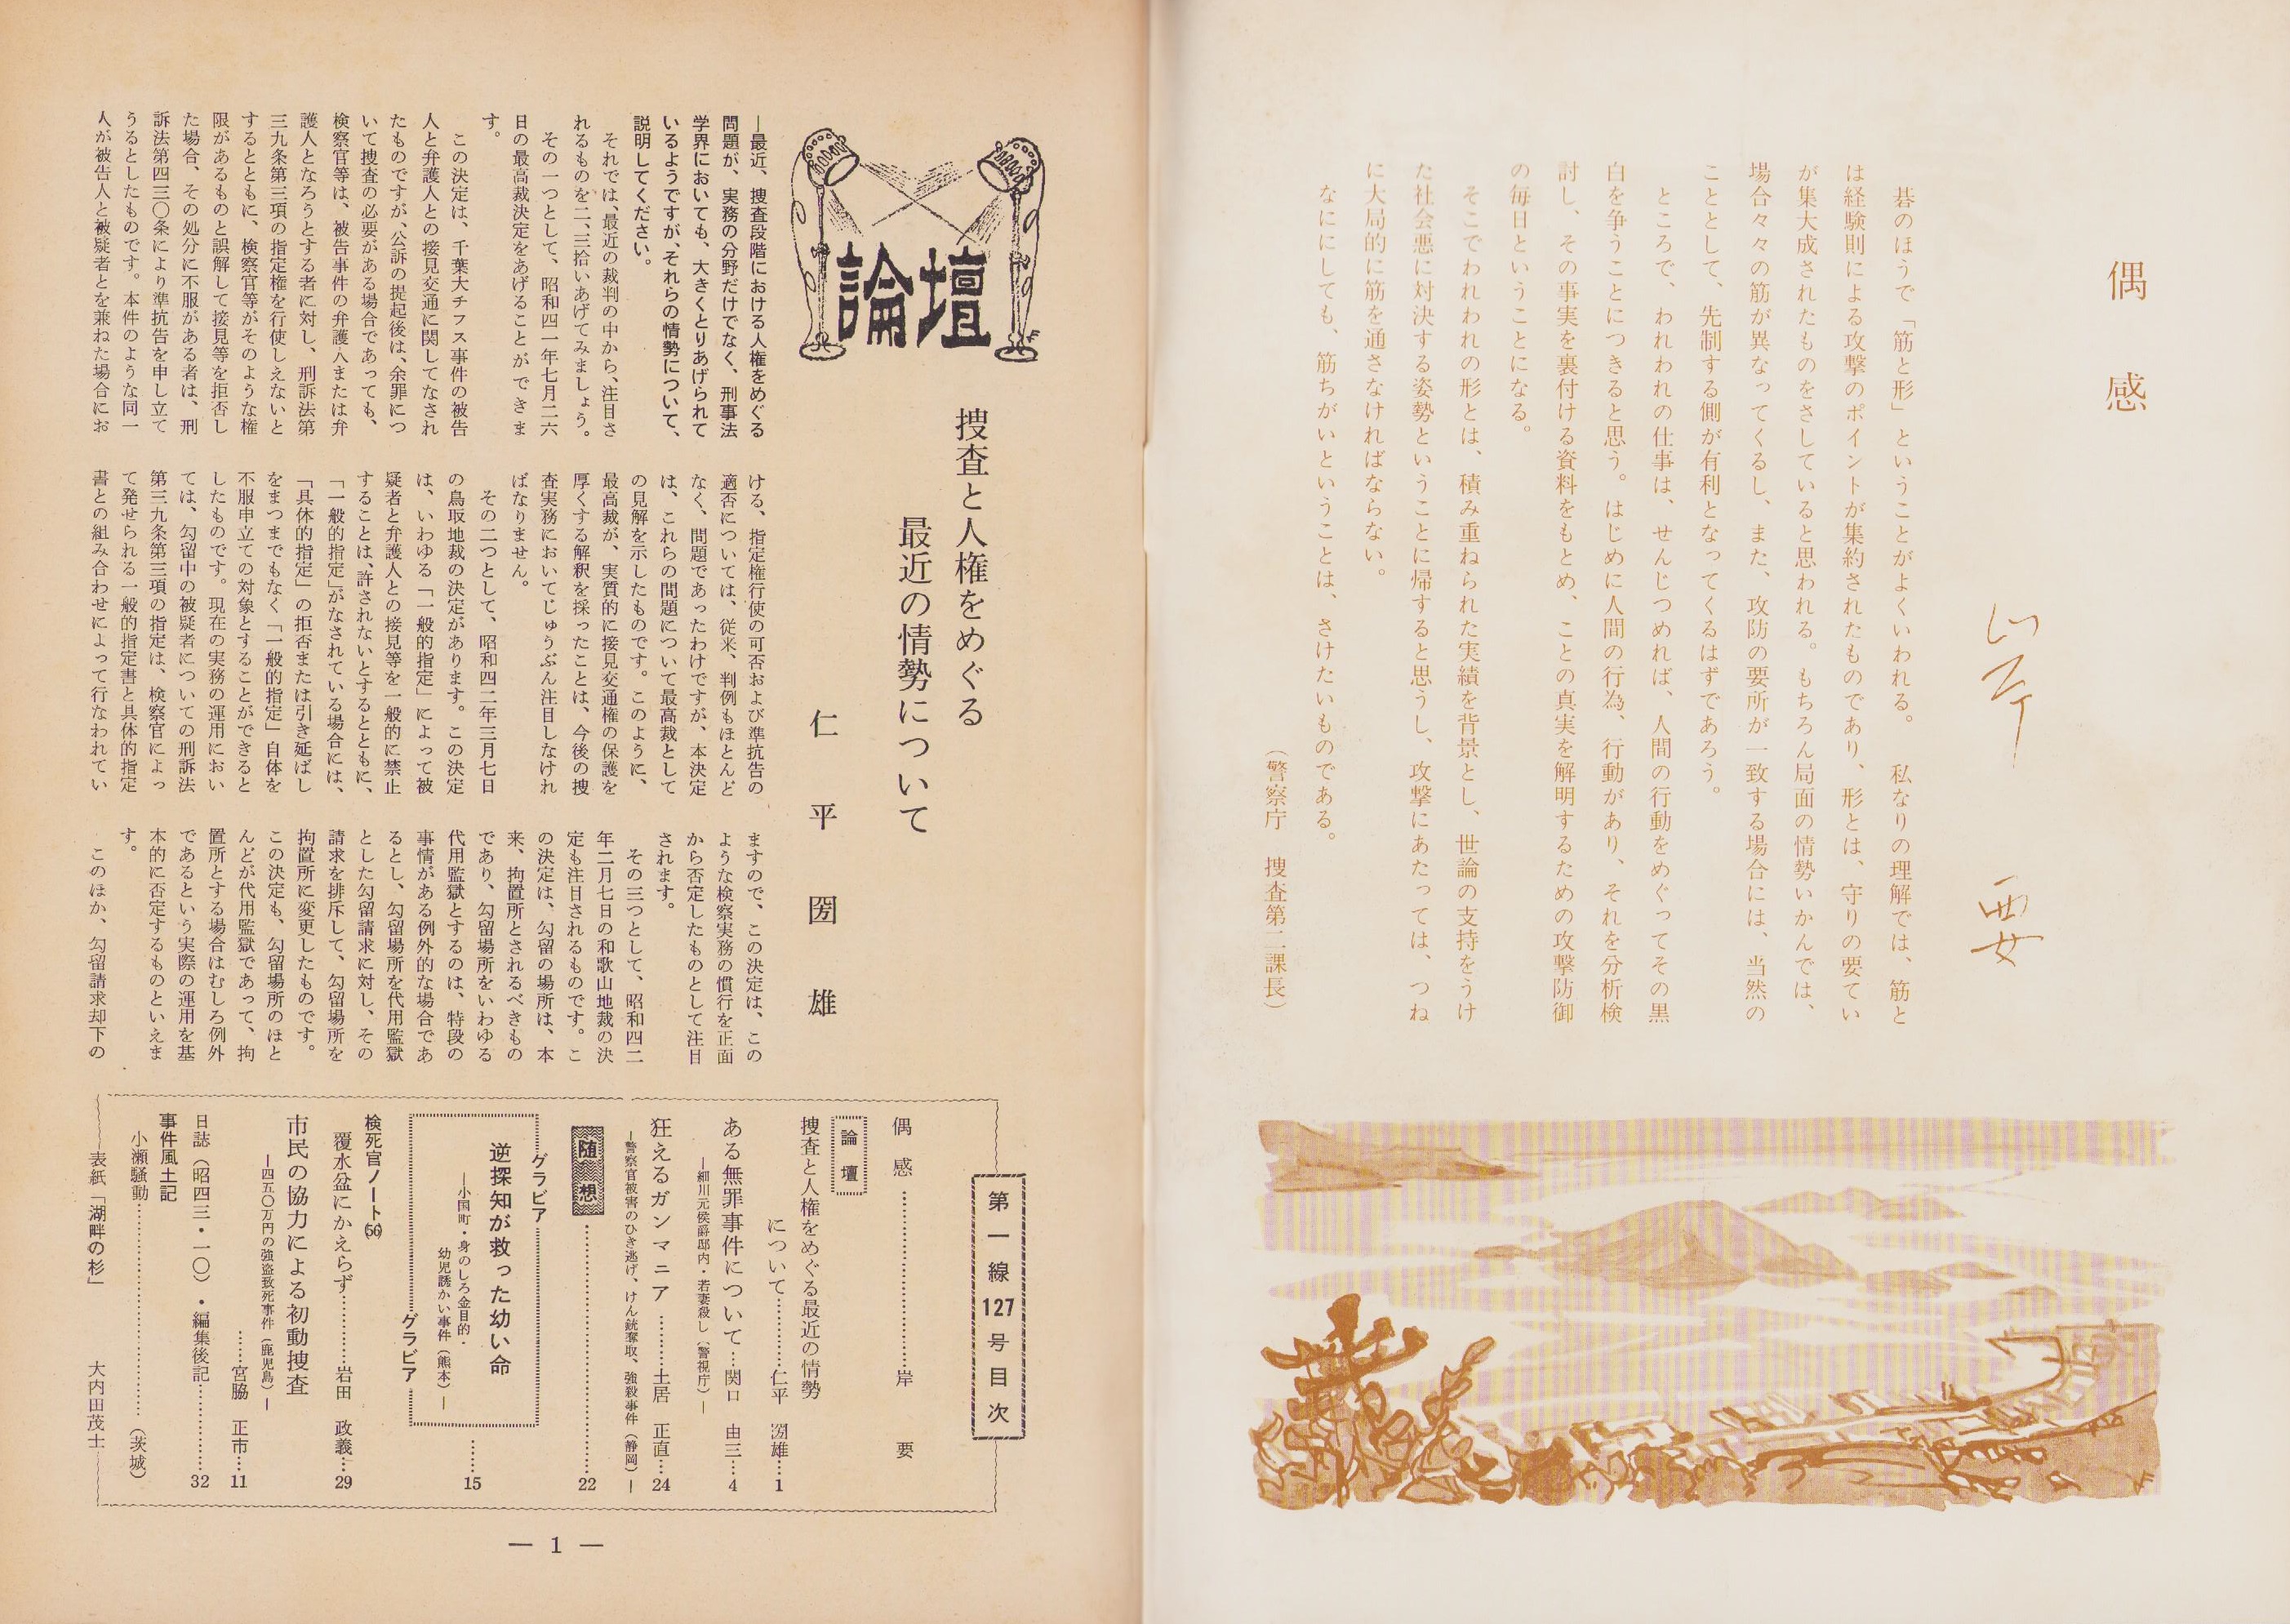 偶感
岸 要
碁のほうで「筋と形」ということがよくいわれる。 私なりの理解では、筋と
は経験則による攻撃のポイントが集約されたものであり、形とは、守りの要てい
が集大成されたものをさしていると思われる。もちろん局面の情勢いかんでは、
場合々々の筋が異なってくるし、また、攻防の要所が一致する場合には、当然の
こととして、先制する側が有利となってくるはずであろう。
ところで、われわれの仕事は、せんじつめれば、人間の行動をめぐってその黒
白を争うことにつきると思う。はじめに人間の行為、行動があり、それを分析検
討し、その事実を裏付ける資料をもとめ、ことの真実を解明するための攻撃防御
の毎日ということになる。
そこでわれわれの形とは、積み重ねられた実績を背景とし、世論の支持をうけ
た社会悪に対決する姿勢ということに帰すると思うし、攻撃にあたっては、つね
に大局的に筋を通さなければならない。
なににしても、筋ちがいということは、さけたいものである。
（警察庁 捜査第二課長）
論壇
捜査と人権をめぐる
最近の情勢について
仁平圀雄
―最近、捜査段階における人権をめぐる
問題が、実務の分野だけでなく、刑事法
学界においても、大きくとりあげられて
いるようですが、それらの情勢について、
説明してください。
それでは、最近の裁判の中から、注目さ
れるものを二、三拾いあげてみましょう。
その一つとして、昭和四一年七月二六
日の最高裁決定をあげることができま
す。
この決定は、千葉大チフス事件の被告
人と弁護人との接見交通に関してなされ
たものですが、公訴の提起後は、余罪につ
いて捜査の必要がある場合であっても、
検察官等は、被告事件の弁護人または弁
護人となろうとする者に対し、刑訴法第
三九条第三項の指定権を行使しえないと
するとともに、検察官等がそのような権
限があるものと誤解して接見等を拒否し
た場合、その処分に不服がある者は、刑
訴法第四三〇条により準抗告を申し立て
うるとしたものです。本件のような同一
人が被告人と被疑者とを兼ねた場合にお
ける、指定権行使の可否および準抗告の
適否については、従来、判例もほとんど
なく、問題であったわけですが、本決定
は、これらの問題について最高裁として
の見解を示したものです。このように、
最高裁が、実質的に接見交通権の保護を
厚くする解釈を採ったことは、今後の捜
査実務においてじゅうぶん注目しなけれ
ばなりません。
その二つとして、昭和四二年三月七日
の鳥取地裁の決定があります。この決定
は、いわゆる「一般的指定」によって被
疑者と弁護人との接見等を一般的に禁止
することは、許されないとするとともに、
「一般的指定」がなされている場合には、
「具体的指定」の拒否または引き延ばし
をまつまでもなく「一般的指定」自体を
不服申立ての対象とすることができると
したものです。現在の実務の運用におい
ては、勾留中の被疑者についての刑訴法
第三九条第三項の指定は、検察官によっ
て発せられる一般的指定書と具体的指定
書との組み合わせによって行なわれてい
ますので、この決定は、この
ような検察実務の慣行を正面
から否定したものとして注目
されます。
その三つとして、昭和四二
年二月七日の和歌山地裁の決
定も注目されるものです。こ
の決定は、勾留の場所は、本
来、拘置所とされるべきもの
であり、勾留場所をいわゆる
代用監獄とするのは、特段の
事情がある例外的な場合であ
るとし、勾留場所を代用監獄
とした勾留請求に対し、その
請求を排斥して、勾留場所を
拘置所に変更したものです。
この決定も、勾留場所のほと
んどが代用監獄であって、拘
置所とする場合はむしろ例外
であるという実際の運用を基
本的に否定するものといえま
す。
このほか、勾留請求却下の
第一線127号目次
偶感……………岸 要
論壇
捜査と人権をめぐる最近の情勢
について…………仁平 圀雄…1
ある無罪事件について…関口 由三…4
―細川元侯爵邸内・若妻殺し（警視庁）―
狂えるガンマニア………土居 正直…24
―警察官被害のひき逃げ、けん銃奪取、強殺事件（静岡）―
随想……………22
グラビア
逆探知が救った幼い命
―小国町・身のしろ金目的・
幼児誘かい事件（熊本）―
……15
グラビア
検死官ノート(56)
覆水盆にかえらず…………岩田 政義…29
市民の協力による初動捜査
―四五〇万円の強盗致死事件（鹿児島）―
……宮脇 正市…11
日誌（昭四三・一〇）・編集後記…………32
事件風土記
小瀬騒動……………（茨城）
表紙「湖畔の杉」 大内田茂士
― 1 ―